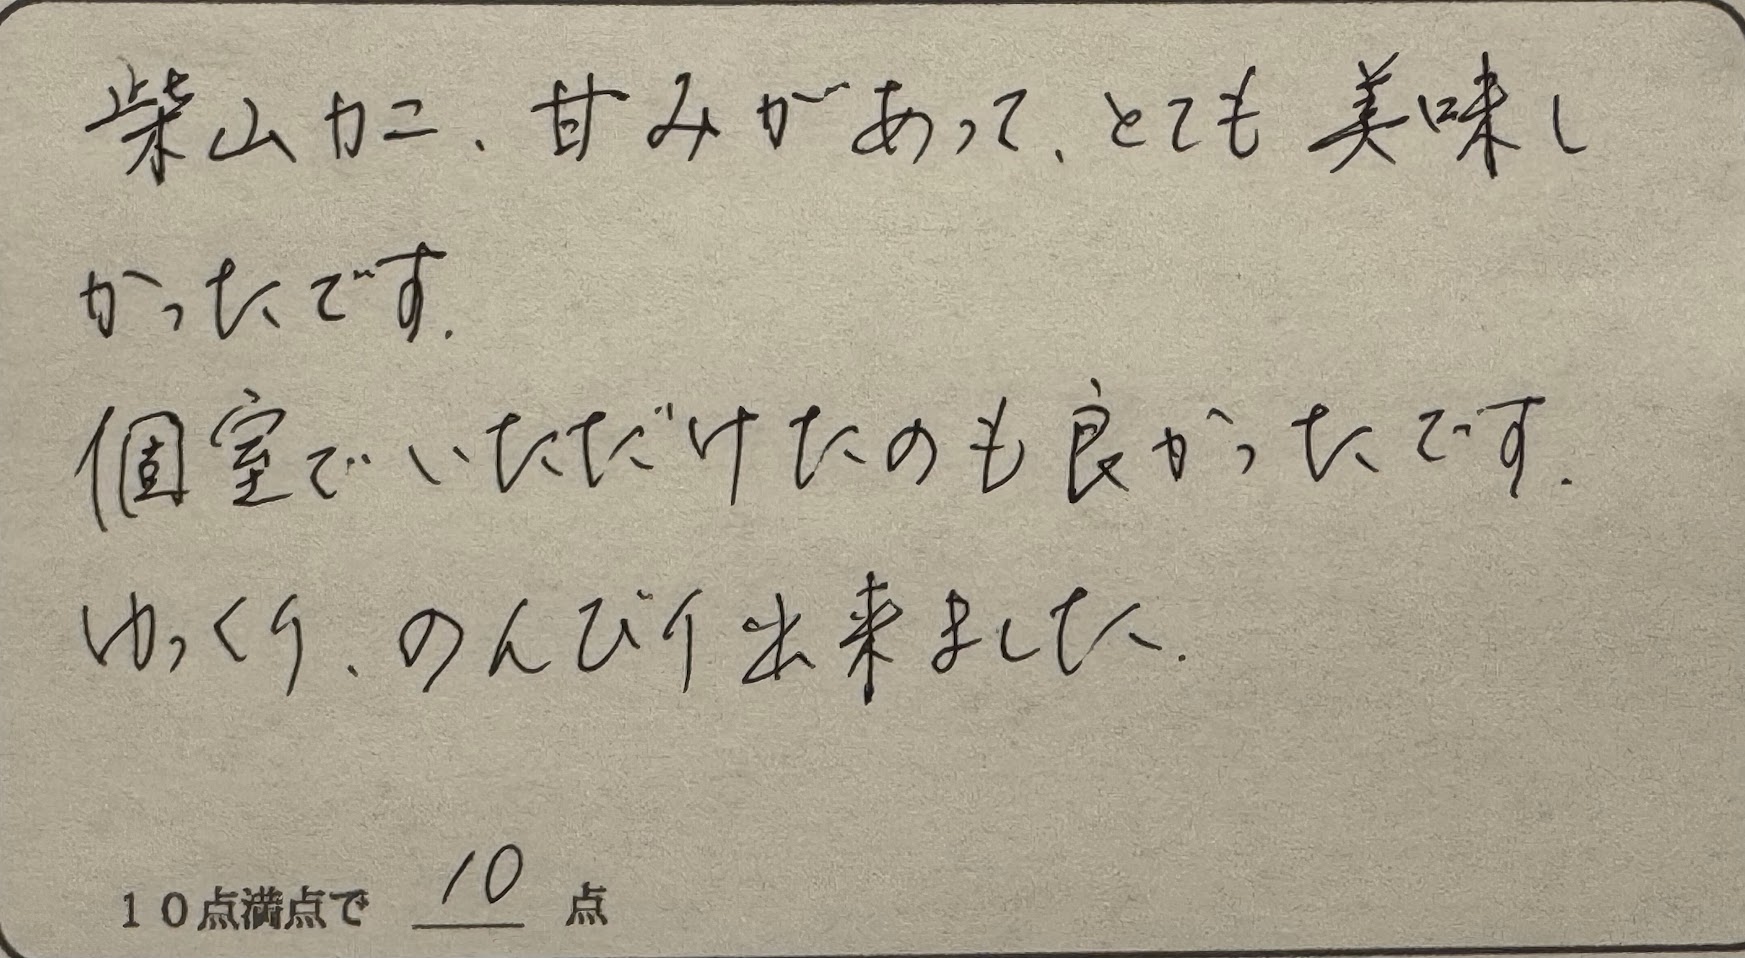 柴山カニ、甘みがあって、とても美味し
かったです.
個室でいただけたのも良かったです.
ゆっくり、のんびり出来ました.
10点満点で 10 点